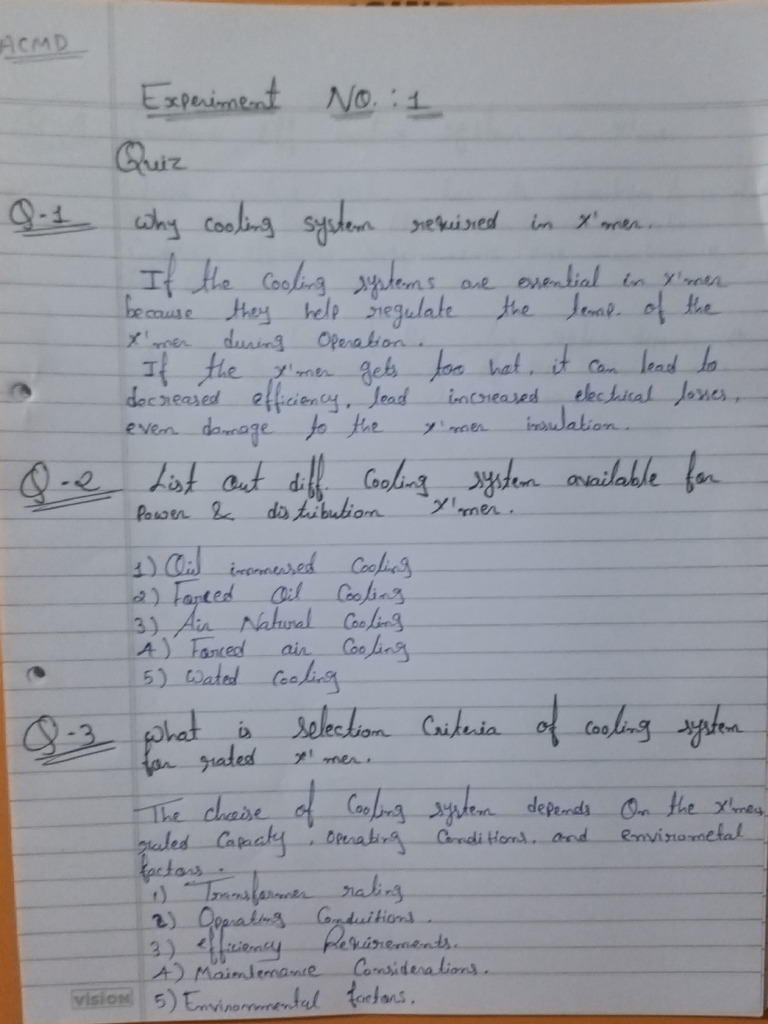 ACMD
Experiment No. : 1
Quiz
Q-1 Why cooling system required in x'mer.
If the cooling systems are essential in x'mer
because they help regulate the temp. of the
x'mer during operation.
If the x'mer gets too hot, it can lead to
decreased efficiency, lead increased electrical losses,
even damage to the x'mer insulation.
Q-2 List out diff. cooling system available for
Power & distribution x'mer.
1) Oil immersed Cooling
2) Forced Oil Cooling
3) Air Natural Cooling
4) Forced air Cooling
5) Wated Cooling
Q-3 What is selection Criteria of cooling system
for rated x'mer.
The choise of Cooling system depends On the x'mer
rated Capacity, operating Conditions, and envirometal
factors.
1) Transformer rating
2) Operating Conduitions.
3) efficiency Requirements.
4) Maintemance Considerations.
5) Environmental factors.
vision